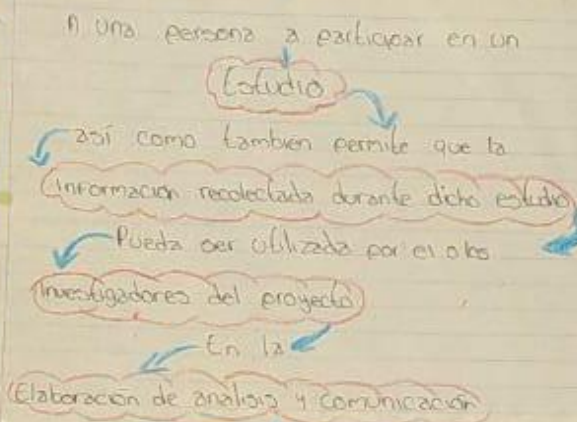 A una persona a participar en un
Estudio
así como tambien permite que la
Información recolectada durante dicho estudio
Pueda ser utilizada por el o los
Investigadores del proyecto
En la
Elaboración de analisis y comunicación